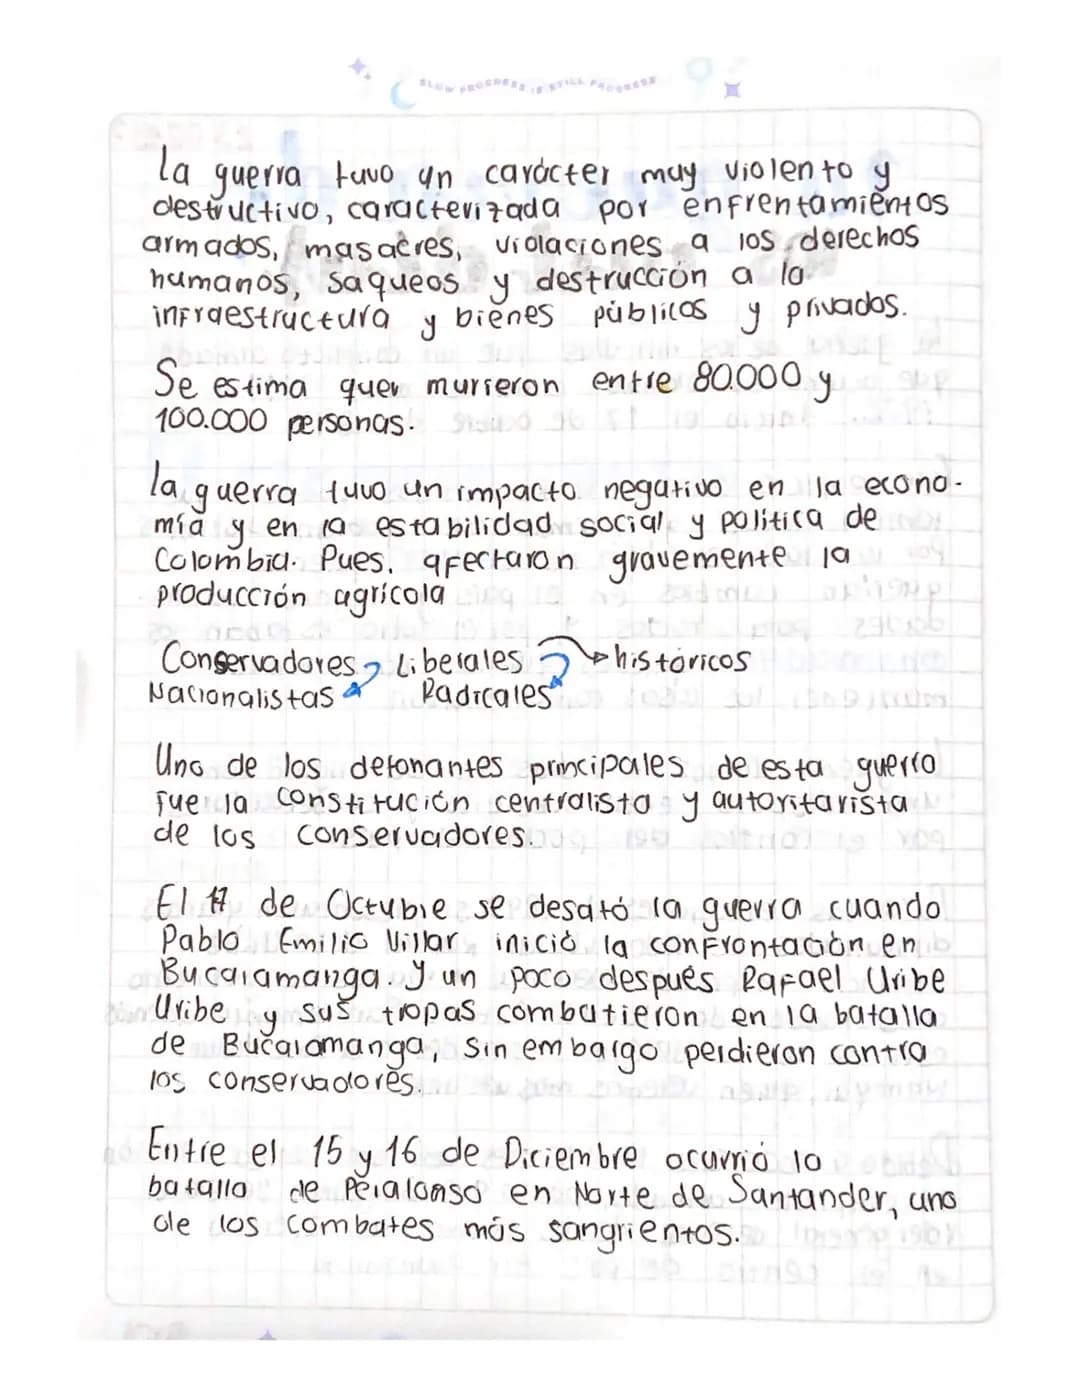 SLOW PROGRESS IS STILL PROGRESS
La guerra tuvo un carácter muy violento y
destructivo, caracterizada por enfrentamientos
armados, masacres, violaciones a los derechos
humanos, saqueos y destrucción a la
infraestructura y bienes públicos y privados.
Se estima que murieron entre 80.000 y
100.000 personas.
la guerra tuvo un impacto negativo en la econo-
mía y en la estabilidad social y política de
Colombia. Pues, afectaron gravemente la
producción agrícola
Conservadores Liberales históricos
Nacionalistas Radicales
Uno de los detonantes principales de esta guerra
fue la constitución centralista y autoritarista
de los conservadores.
El 17 de Octubre se desató la guerra cuando
Pablo Emilio Villar inició la confrontación en
Bucaramanga. y un poco después Rafael Uribe
Uribe y sus tropas combatieron en la batalla
de Bucaramanga, sin embargo perdieron contra
los conservadores.
Entre el 15 y 16 de Diciembre ocurrió la
batalla de Peralonso en Norte de Santander, uno
de los combates más sangrientos.